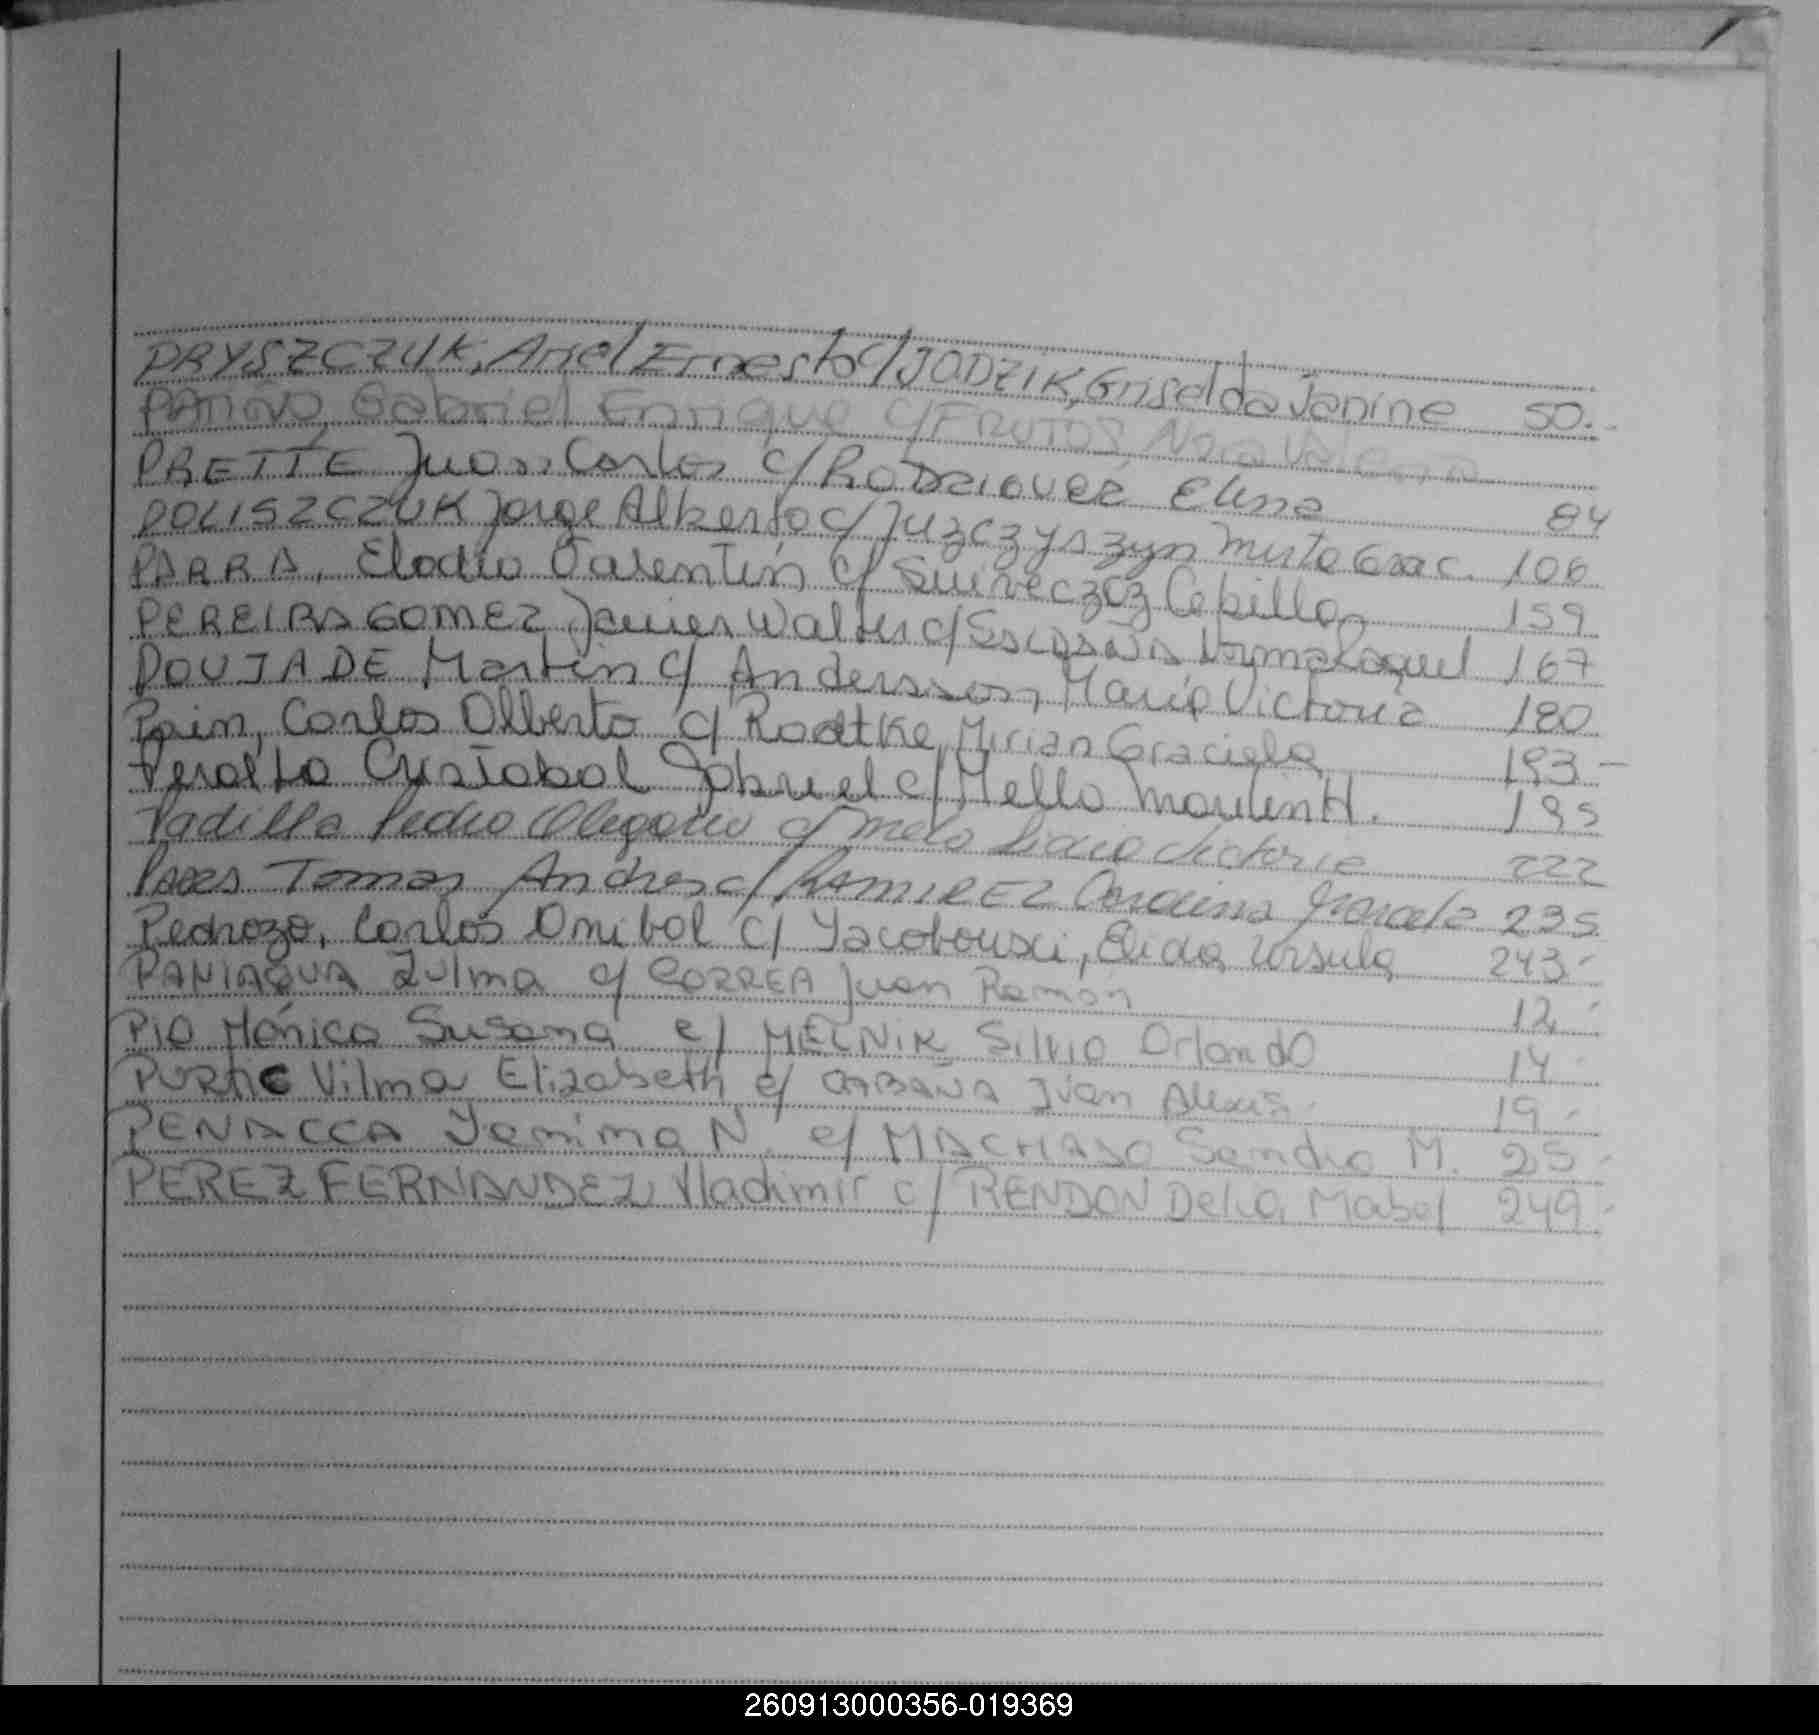 PRYSZCZUK, Ariel Ernesto c/ JODZIK, Griselda Janine 50.
PATIÑO, Gabriel Enrique c/ FRUTOS, Nora
PRETTE Juan Carlos c/ RODRIGUEZ Elena 84
POLISZCZUK Jorge Alberto c/ Juzczyszyn Mirta Grac. 106
PARRA, Elodio Valentin c/ 159
PEREIRA GOMEZ Javier Walter c/ Norma Raquel 167
POUJADE Martin c/ Andersson, María Victoria 180
Pain, Carlos Alberto c/ Radtke, Mirian Graciela 193 -
Peralta Cristobal Gabriel c/ Mello H. 195
Padilla Pedro Olegario c/ Melo Lidia Victoria 222
Tomas Andres c/ RAMIREZ Carolina 235
Pedrozo, Carlos Anibal c/ Yacobouski, Elida Ursula 243
PANIAGUA Zulma c/ CORREA Juan Ramon 12
PIO Mónica Susana c/ MELNIK Silvio Orlando 14
Vilma Elizabeth c/ CABAÑA Iván Alexis 19
PENACCA Yanina N. c/ MACHADO Sandro M. 25
PEREZ FERNANDEZ Vladimir c/ RENDON Delia Mabel 249
260913000356-019369